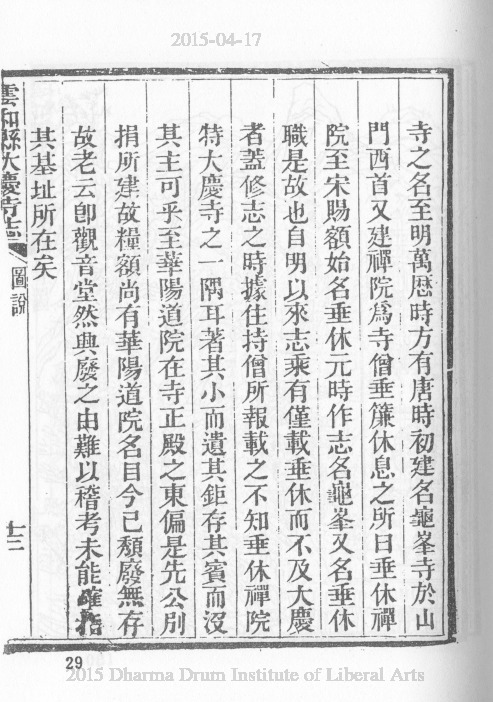 2015-04-17
寺之名至明萬曆時方有唐時初建名龜峯寺於山
門西首又建禪院爲寺僧垂簾休息之所日垂休禪
院至宋賜額始名垂休元時作志名龜峯又名垂休
職是故也自明以來志乘有僅載垂休而不及大慶
者蓋修志之時據住持僧所報載之不知垂休禪院
特大慶寺之一隅耳著其小而遺其鉅存其賓而沒
其主可乎至華陽道院在寺正殿之東偏是先公別
捐所建故糧額尚有華陽道院名目今已頽廢無存
故老云卽觀音堂然興廢之由難以稽考未能確指
其基址所在矣
雲和縣大慶寺志
圖說
十三
29
2015 Dharma Drum Institute of Liberal Arts